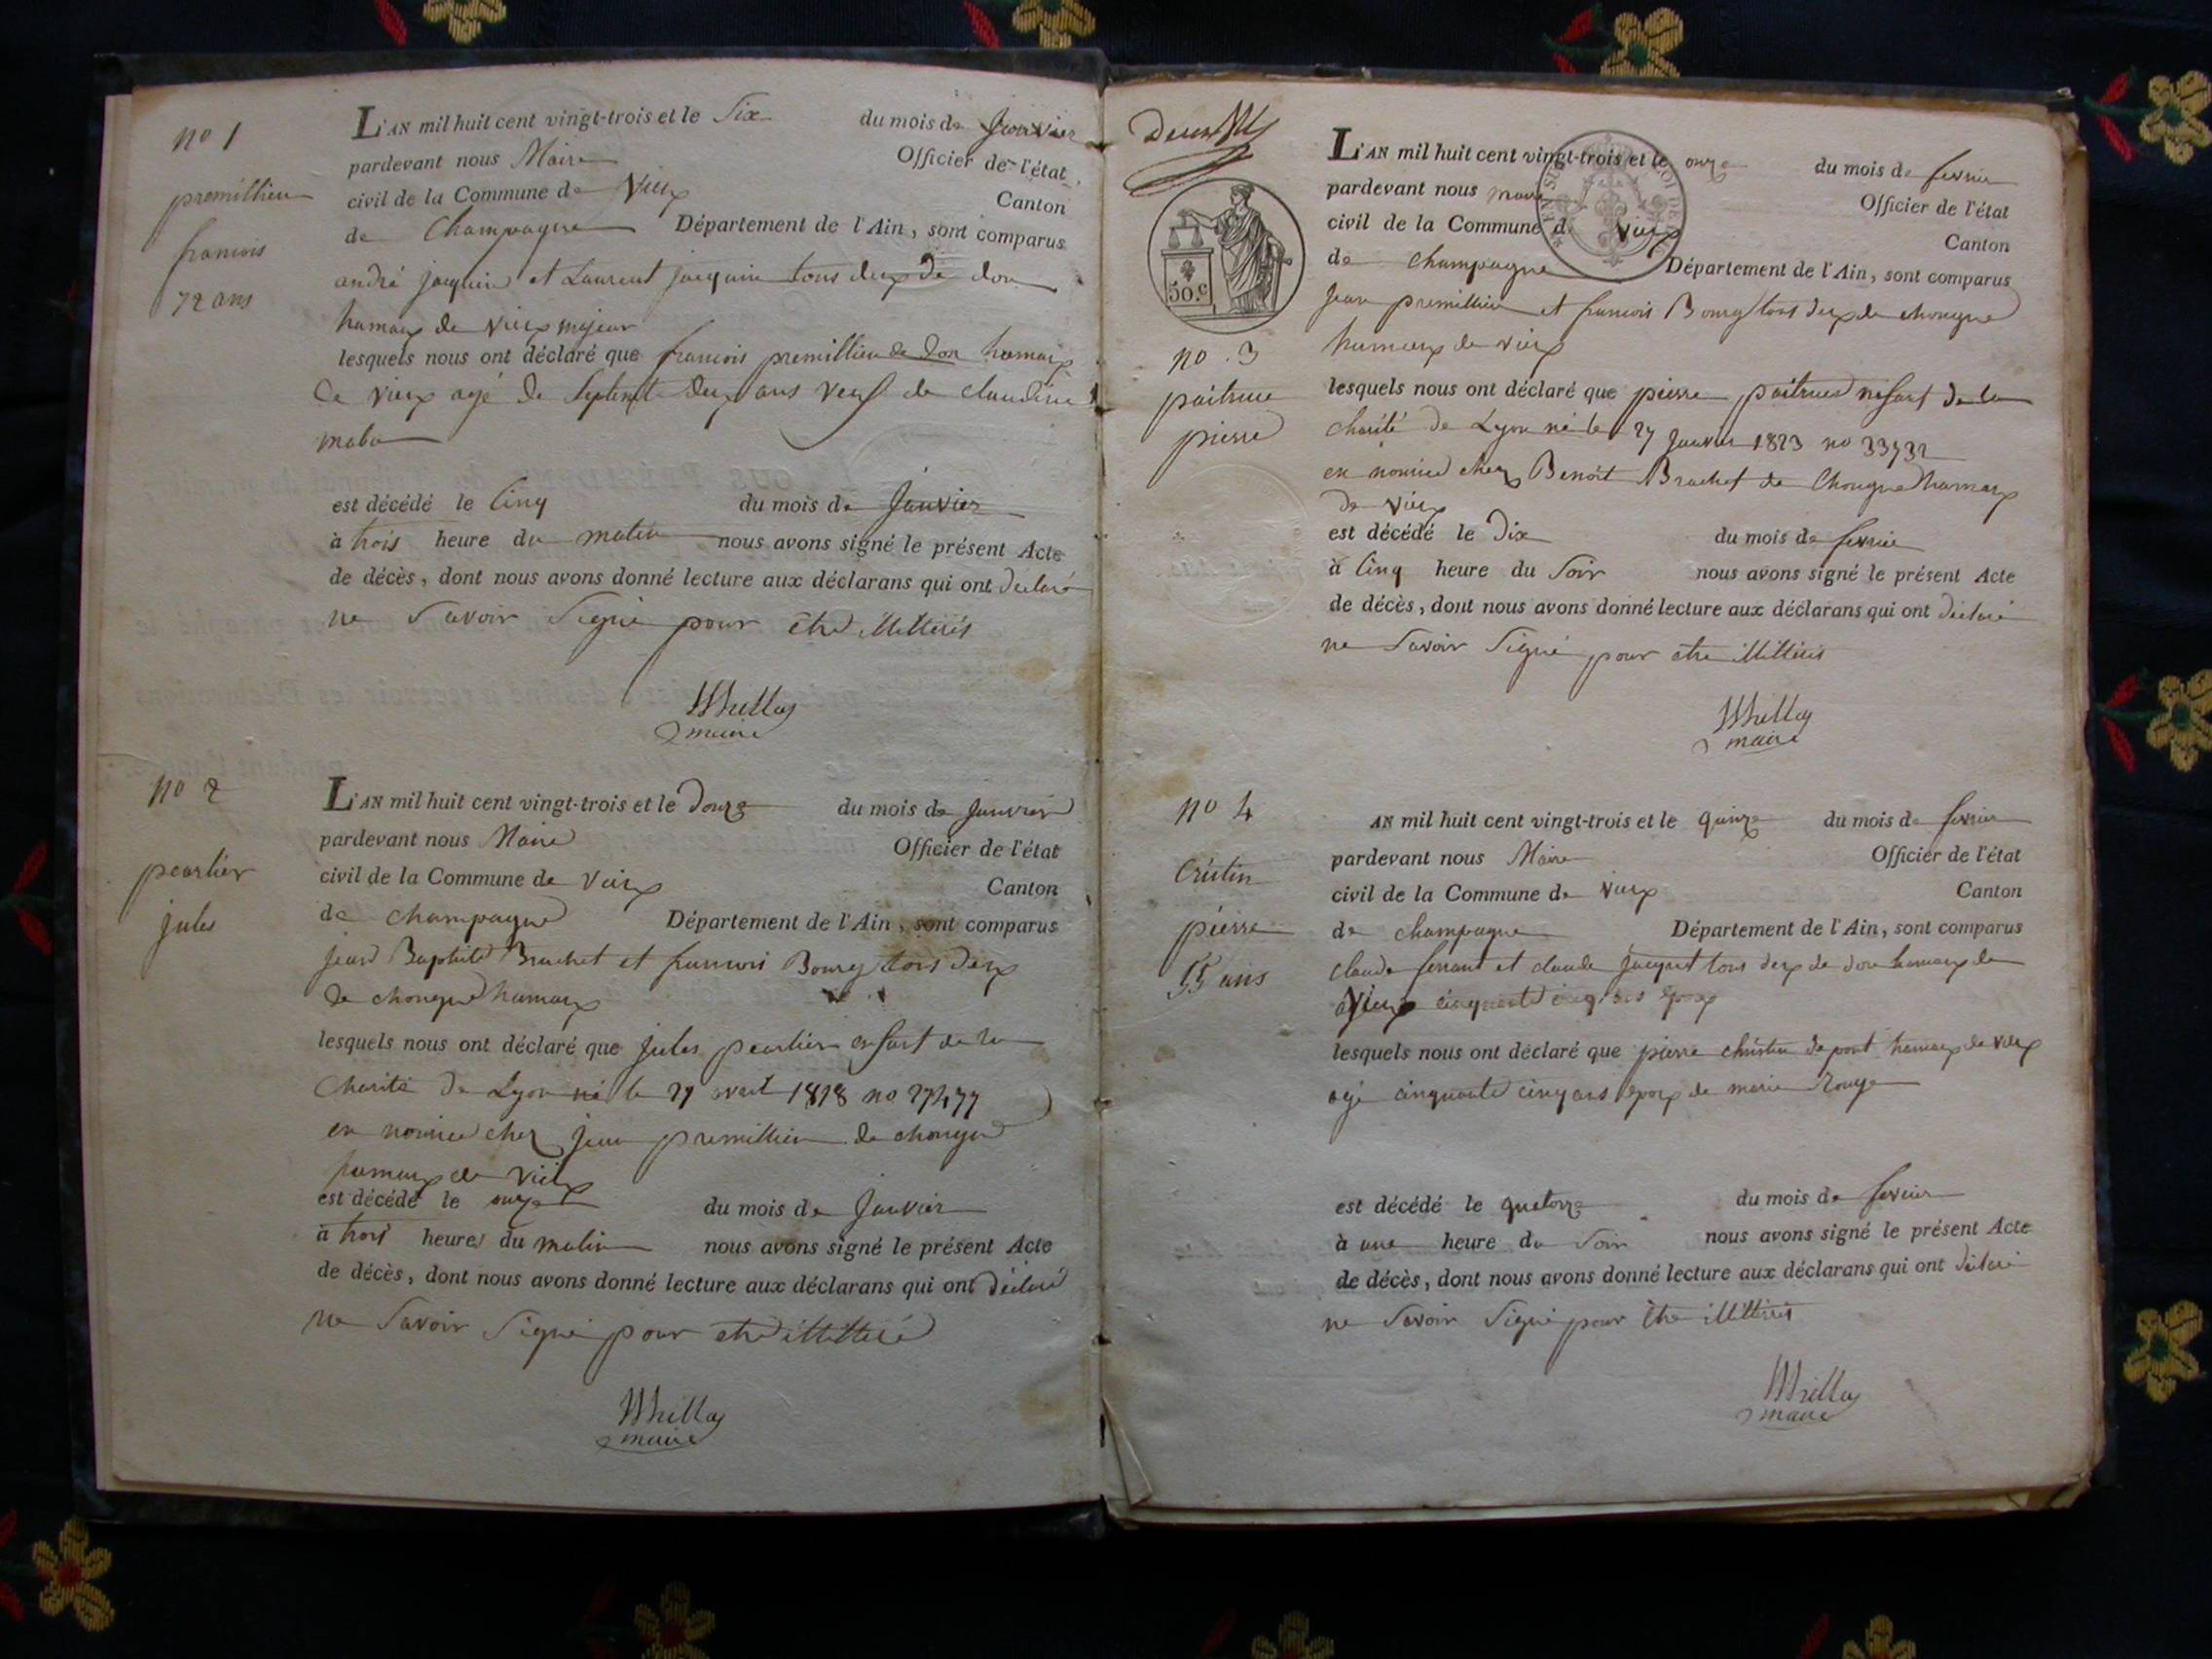 no 1
premillieu
francois
72 ans
L'AN mil huit cent vingt-trois et le Six du mois de Janvier
pardevant nous Maire Officier de l'état
civil de la Commune de Vieux Canton
de Champagne Département de l'Ain, sont comparus
andré jacquin et Laurent jacquin tous deux de don
hamaux de vieux majeur
lesquels nous ont déclaré que francois premillieu de don hamaux
de vieux agé de Septente deux ans veuf de claudine
est décédé le Cinq du mois de Janvier
à trois heure du matin nous avons signé le présent Acte
de décès, dont nous avons donné lecture aux déclarans qui ont déclaré
ne Savoir Signé pour etre illitterés
maire
no 2
pearlier
jules
L'AN mil huit cent vingt-trois et le douze du mois de Janvier
pardevant nous Maire Officier de l'état
civil de la Commune de Vieux Canton
de champagne Département de l'Ain, sont comparus
jean Baptiste Brachet et francois Bourg tous deux
de chongne hamaux
lesquels nous ont déclaré que jules pearlier enfant de la
Charité de Lyon né le 27 1818 no 27477
en nource chez jean premillieu de chongne
hamaux de vieux
est décédé le onze du mois de Janvier
à trois heures du matin nous avons signé le présent Acte
de décès, dont nous avons donné lecture aux déclarans qui ont déclaré
ne Savoir Signé pour etre illitteré
maire
50.c
no. 3
paitrue
pierre
L'AN mil huit cent vingt-trois et le onze du mois de fevrier
pardevant nous maire Officier de l'état
civil de la Commune de vieux Canton
de Champagne Département de l'Ain, sont comparus
Jean premillieu et francois Bourg tous deux de chongne
hamaux de vieux
lesquels nous ont déclaré que pierre paitrue enfant de la
charité de Lyon né le 27 Janvier 1823 no 33732
en nource chez Benoit Brachet de Chongne hamaux
de vieux
est décédé le Dix du mois de fevrier
à Cinq heure du Soir nous avons signé le présent Acte
de décès, dont nous avons donné lecture aux déclarans qui ont déclaré
ne Savoir Signé pour etre illitterés
maire
no 4
Cristin
pierre
55 ans
AN mil huit cent vingt-trois et le quinze du mois de fevrier
pardevant nous Maire Officier de l'état
civil de la Commune de vieux Canton
de champagne Département de l'Ain, sont comparus
claude ferrant et claude jacquet tous deux de don hamaux de
Vieux cinquante cinq ans epoux
lesquels nous ont déclaré que pierre christin de pont hamaux de vieux
agé cinquante cinq ans epoux de marie Rouge
est décédé le quatorze du mois de fevrier
à une heure du Soir nous avons signé le présent Acte
de décès, dont nous avons donné lecture aux déclarans qui ont déclaré
ne Savoir Signé pour être illitterés
maire